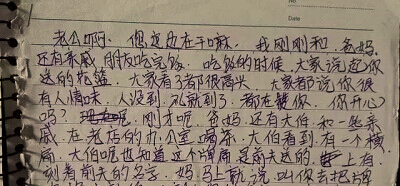 No
Date
老公啊：你现在在干嘛，我刚刚和爸妈，
还有亲戚朋友吃完饭。吃饭的时候，大家说起你
送的花篮，大家看了都很高兴，大家都说你很
有人情味，人没到，礼就到了，都在赞你，你开心
吗？刚才呢，爸妈还有大伯和一些亲
戚在老店的办公室喝茶，大伯看到有一个牌
匾，大伯呢也知道这个牌匾是前夫送的，上有
刻着前夫的名字，妈马上就说叫你去把牌